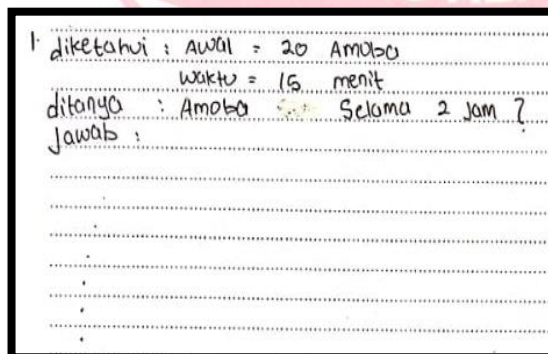 1. diketahui : Awal = 20 Amoba
waktu = 15 menit
ditanya : Amoba Selama 2 Jam ?
Jawab :